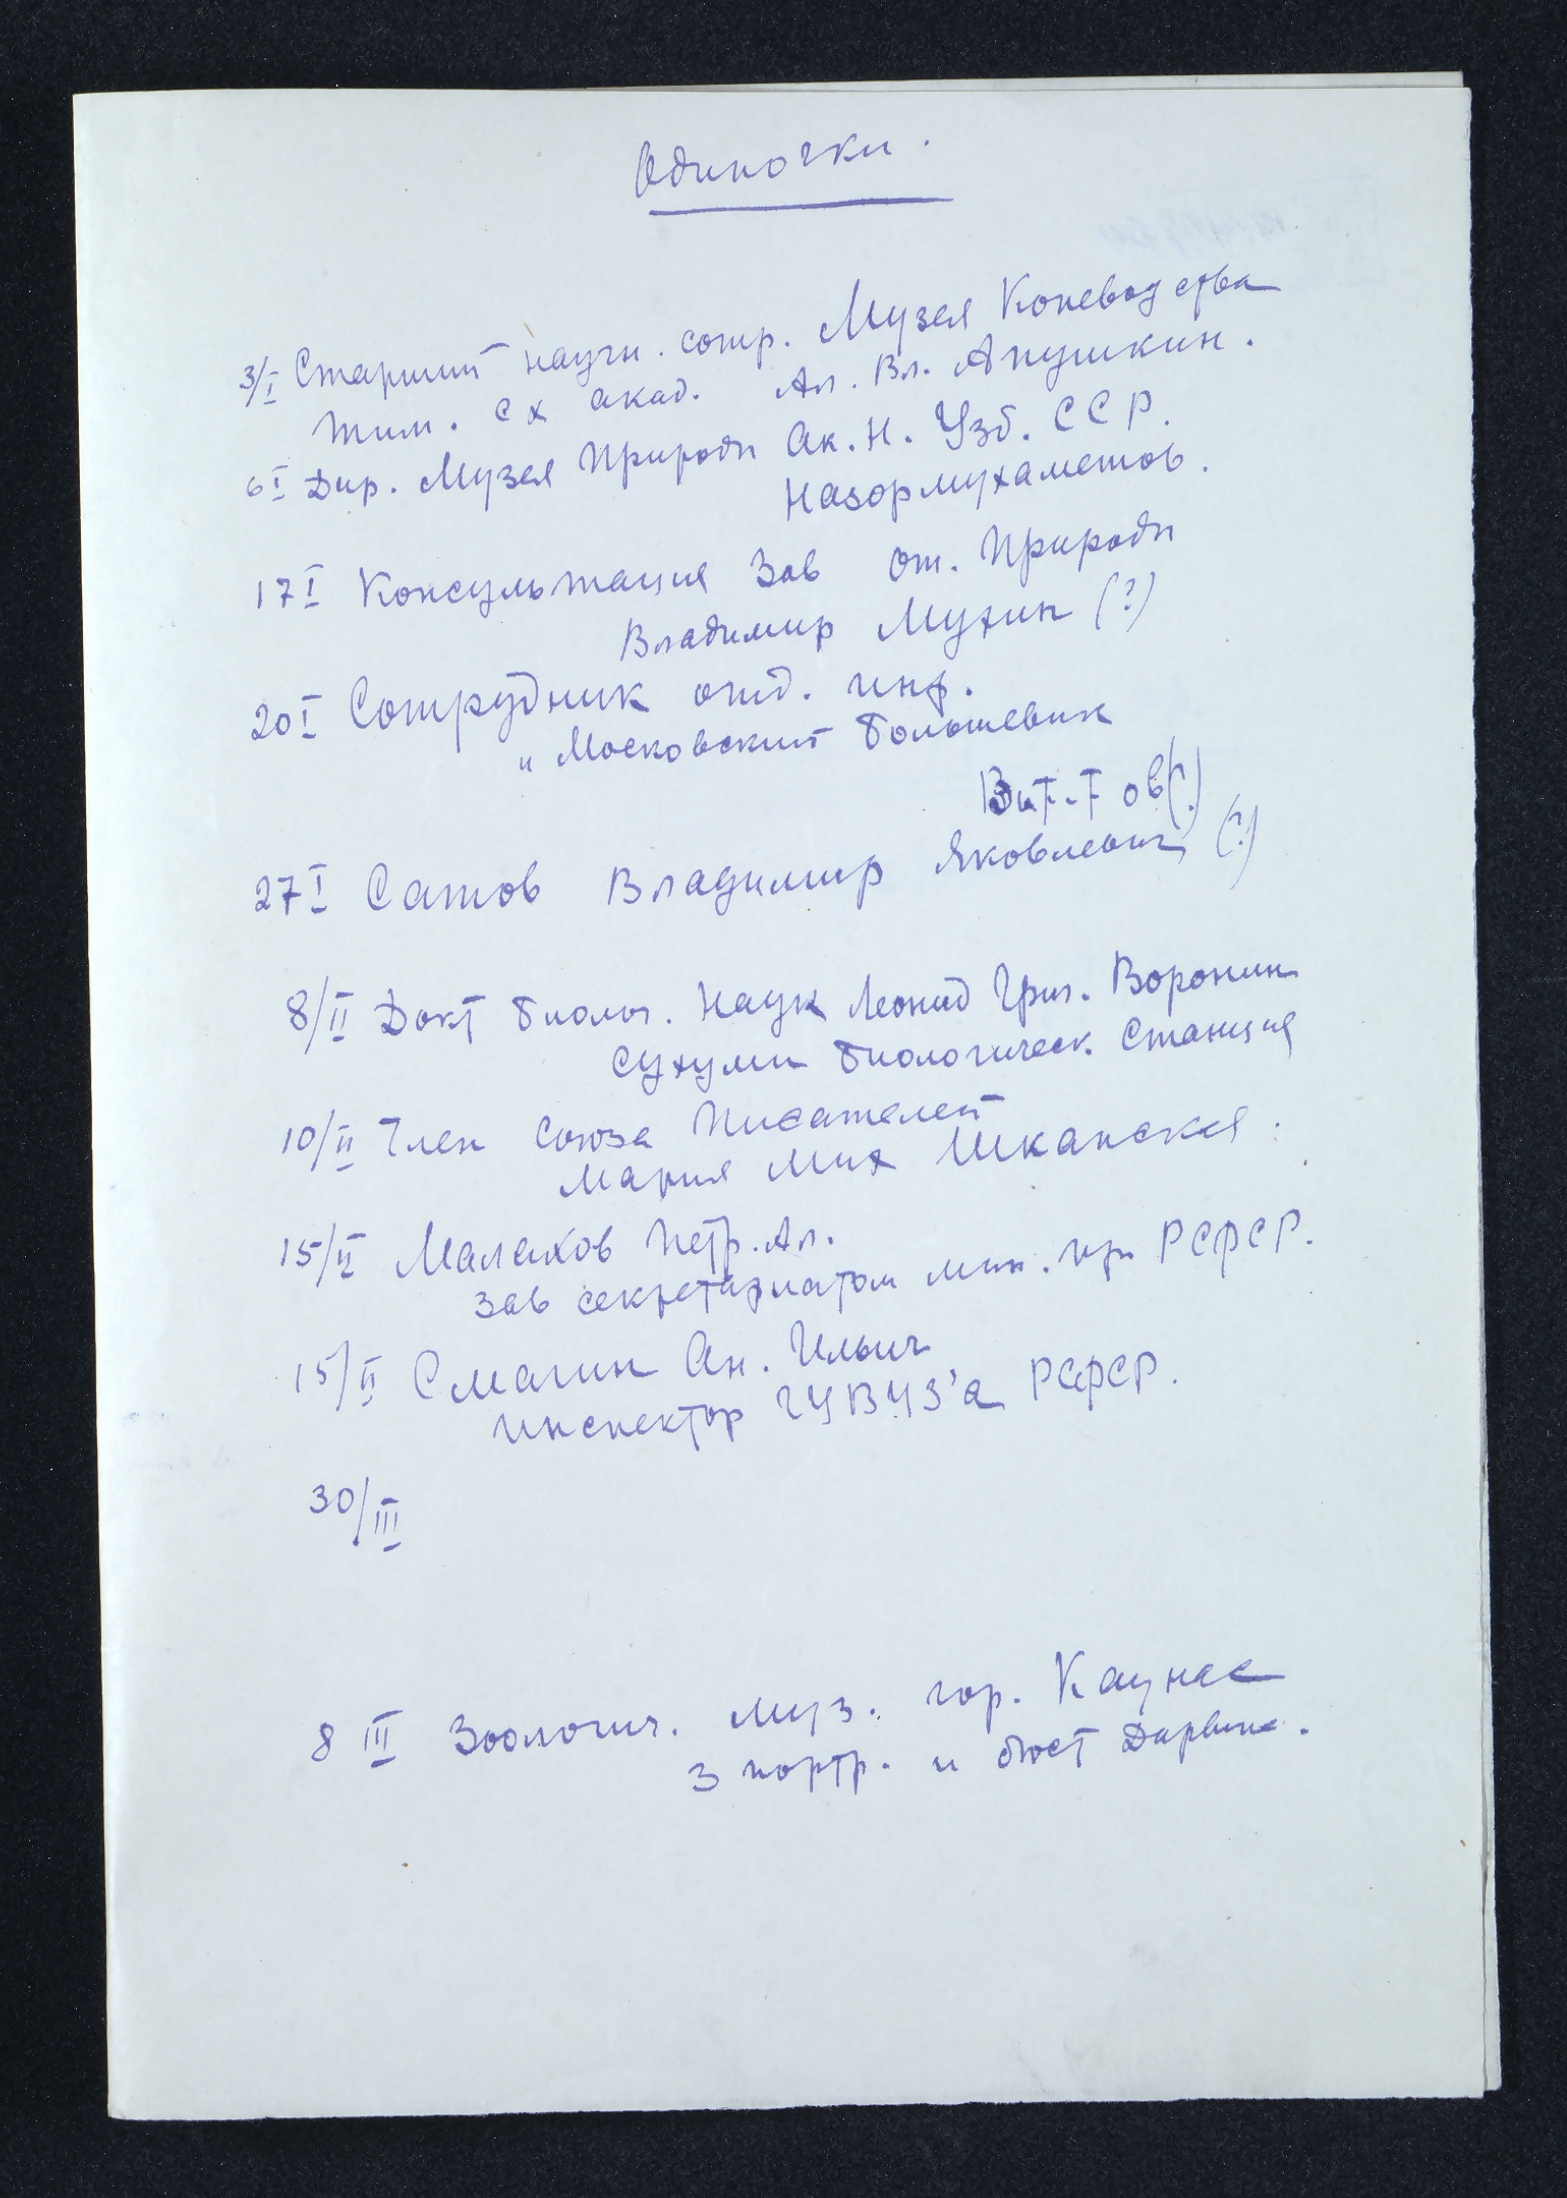 Одиночки.
3/I Старший научн. сотр. Музея Коневодства
Тим. с х акад. Ал. Вл. Апушкин.
6 I Дир. Музея Природы Ак. Н. Узб. ССР.
Назормухаметов.
17 I Консультация Зав От. Природы
Владимир Мухин (?)
20 I Сотрудник отд. инф.
"Московский большевик
(?)
27 I Сатов Владимир Яковлевич (?)
8/II Докт биолог. Наук Леонид Григ. Воронин
Сухуми биологическ. Станция
10/II Член Союза Писателей
Мария Мих Шкапская.
15/II Малахов Петр. Ал.
Зав секретариатом мин. пр РСФСР.
15/II Смагин Ан. Ильич
инспектор ГУВУЗ'а РСФСР.
30/III
8 III Зоологич. муз. гор. Каунас
3 портр. и бюст Дарвина.